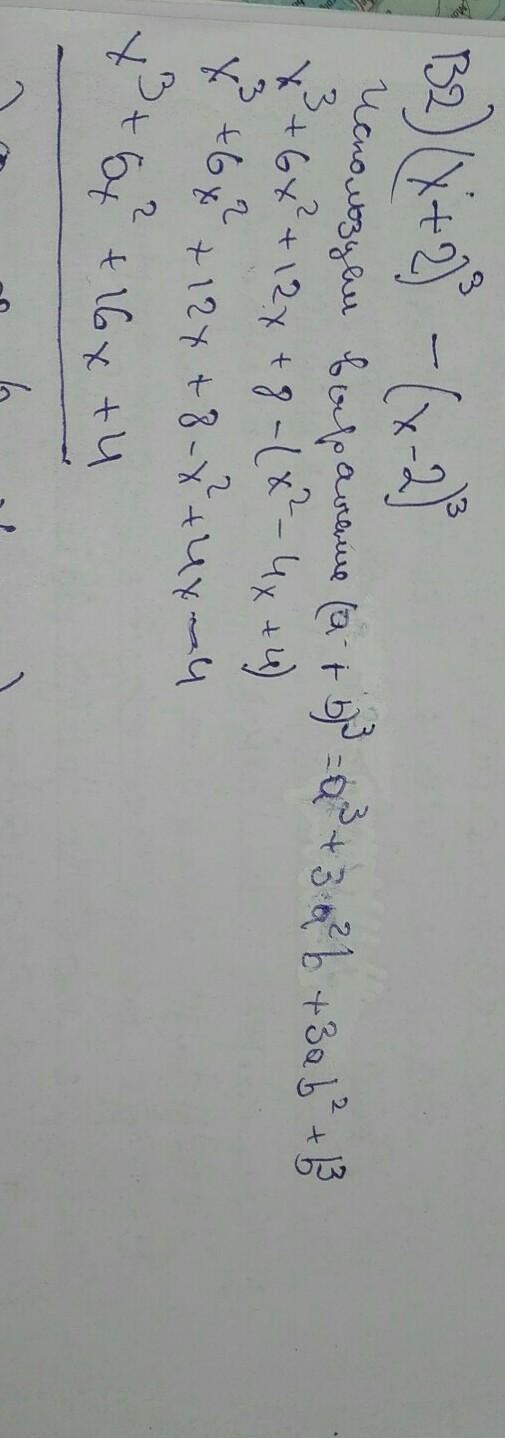 B2) (x+2)³ - (x-2)³
Используем выражение (a + b)³ = a³ + 3a²b + 3ab² + b³
x³ + 6x² + 12x + 8 - (x² - 4x + 4)
x³ + 6x² + 12x + 8 - x² + 4x - 4
x³ + 6x² + 16x + 4